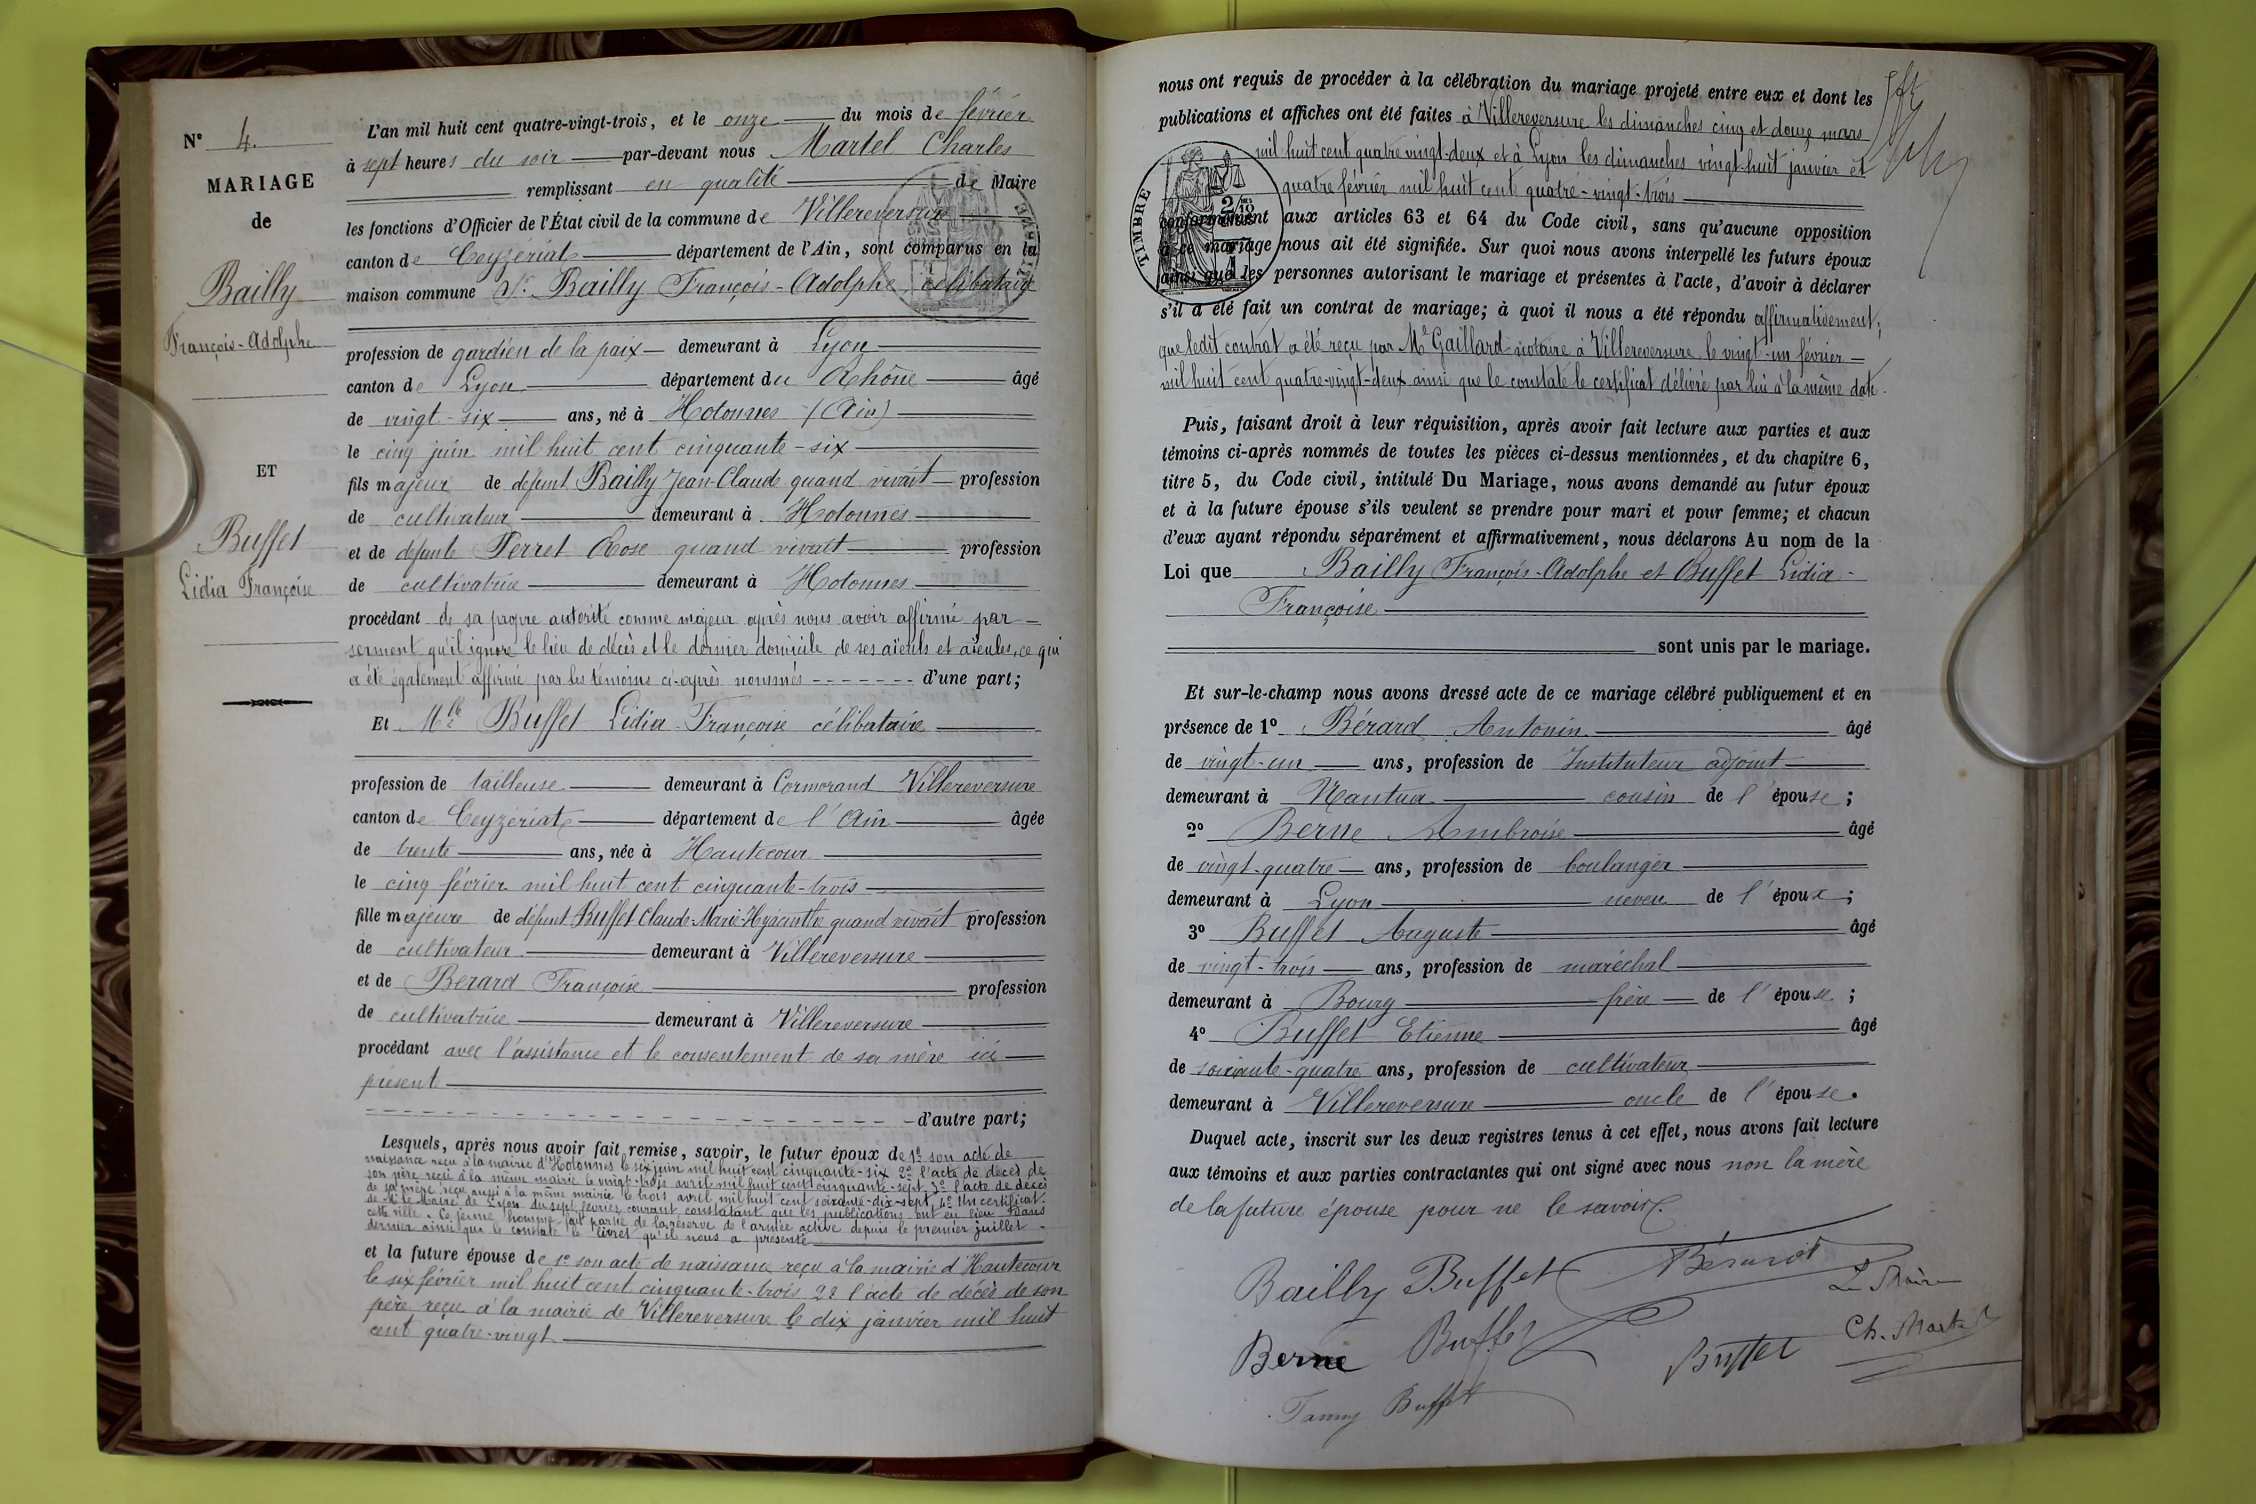 N° 4.
MARIAGE
de
Bailly
François-Adolphe
ET
Buffet
Lidia Françoise
L'an mil huit cent quatre-vingt-trois, et le onze du mois de février
à sept heures du soir par-devant nous Martel Charles
remplissant en qualité de Maire
les fonctions d'Officier de l'État civil de la commune de Villereversure
canton de Ceyzériat département de l'Ain, sont comparus en la
maison commune Sr. Bailly François-Adolphe, célibataire
profession de gardien de la paix demeurant à Lyon
canton de Lyon département du Rhône âgé
de vingt-six ans, né à Hotonnes (Ain)
le cinq juin mil huit cent cinquante-six
fils majeur de défunt Bailly Jean-Claude quand vivait profession
de cultivateur demeurant à Hotonnes
et de défunte Perret Rose quand vivait profession
de cultivatrice demeurant à Hotonnes
procédant de sa propre autorité comme majeur après nous avoir affirmé par
serment qu'il ignore le lieu de décès et le dernier domicile de ses aïeuls et aïeules, ce qui
a été également affirmé par les témoins ci-après nommés - - - - - - - d'une part;
Et Mlle Buffet Lidia-Françoise célibataire
profession de tailleuse demeurant à Cormorand Villereversure
canton de Ceyzériat département de l'Ain âgée
de trente ans, née à Hautecour
le cinq février mil huit cent cinquante-trois
fille majeure de défunt Buffet Claude-Marie-Hyacinthe quand vivait profession
de cultivateur demeurant à Villereversure
et de Berard Françoise profession
de cultivatrice demeurant à Villereversure
procédant avec l'assistance et le consentement de sa mère ici
présent
d'autre part;
Lesquels, après nous avoir fait remise, savoir, le futur époux de 1° son acte de
naissance reçu à la mairie d'Hotonnes le six juin mil huit cent cinquante-six 2° l'acte de décès de
son père reçu à la même mairie le vingt-trois avril mil huit cent cinquante-sept 3° l'acte de décès
de sa mère reçu aussi à la même mairie le trois avril mil huit cent soixante-dix-sept 4° Un certificat
de Mr le Maire de Lyon du sept février courant constatant que les publications ont eu lieu dans
cette ville. Ce jeune homme fait partie de la réserve de l'armée active depuis le premier juillet
dernier ainsi que le constate le livret qu'il nous a présenté
et la future épouse de 1° son acte de naissance reçu à la mairie d'Hautecour
le six février mil huit cent cinquante-trois 2° l'acte de décès de son
père reçu à la mairie de Villereversure le dix janvier mil huit
cent quatre-vingt
nous ont requis de procéder à la célébration du mariage projeté entre eux et dont les
publications et affiches ont été faites à Villereversure les dimanches cinq et douze mars
mil huit cent quatre vingt-deux et à Lyon les dimanches vingt-huit janvier et
quatre février mil huit cent quatre-vingt-trois
TIMBRE
conformément aux articles 63 et 64 du Code civil, sans qu'aucune opposition
à ce mariage nous ait été signifiée. Sur quoi nous avons interpellé les futurs époux
ainsi que les personnes autorisant le mariage et présentes à l'acte, d'avoir à déclarer
s'il a été fait un contrat de mariage; à quoi il nous a été répondu affirmativement,
que ledit contrat a été reçu par Me Gaillard notaire à Villereversure le vingt-un février
mil huit cent quatre-vingt-deux ainsi que le constate le certificat délivré par lui à la même date.
Puis, faisant droit à leur réquisition, après avoir fait lecture aux parties et aux
témoins ci-après nommés de toutes les pièces ci-dessus mentionnées, et du chapitre 6,
titre 5, du Code civil, intitulé Du Mariage, nous avons demandé au futur époux
et à la future épouse s'ils veulent se prendre pour mari et pour femme; et chacun
d'eux ayant répondu séparément et affirmativement, nous déclarons Au nom de la
Loi que Bailly François-Adolphe et Buffet Lidia-
Françoise
sont unis par le mariage.
Et sur-le-champ nous avons dressé acte de ce mariage célébré publiquement et en
présence de 1° Bérard Antonin âgé
de vingt-un ans, profession de Instituteur adjoint
demeurant à Nantua cousin de l'épouse;
2° Berne Ambroise âgé
de vingt-quatre ans, profession de boulanger
demeurant à Lyon neveu de l'époux;
3° Buffet Auguste âgé
de vingt-trois ans, profession de maréchal
demeurant à Bourg frère de l'épouse;
4° Buffet Etienne âgé
de soixante-quatre ans, profession de cultivateur
demeurant à Villereversure oncle de l'épouse.
Duquel acte, inscrit sur les deux registres tenus à cet effet, nous avons fait lecture
aux témoins et aux parties contractantes qui ont signé avec nous non la mère
de la future épouse pour ne le savoir.
Bailly Buffet Bérard
Le Maire
Berne Buffet Buffet Ch. Martel
Fanny Buffet